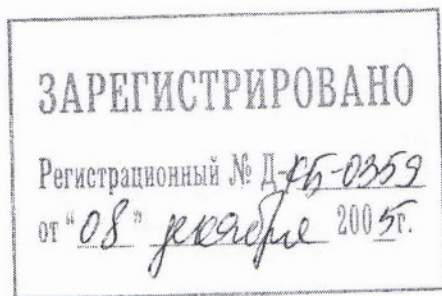 ЗАРЕГИСТРИРОВАНО
Регистрационный № Д-КБ-0359
от "08" декабря 2005г.